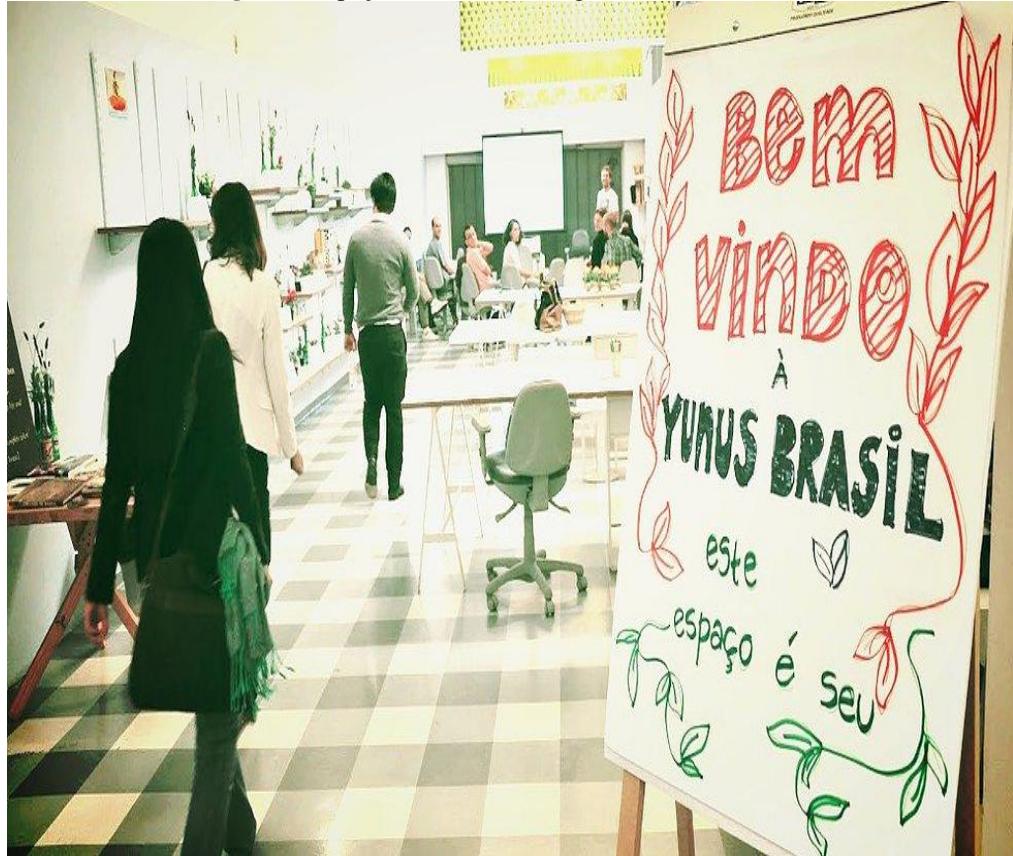 Bem
VINDO
À
YUNUS BRASIL
este
espaço é seu